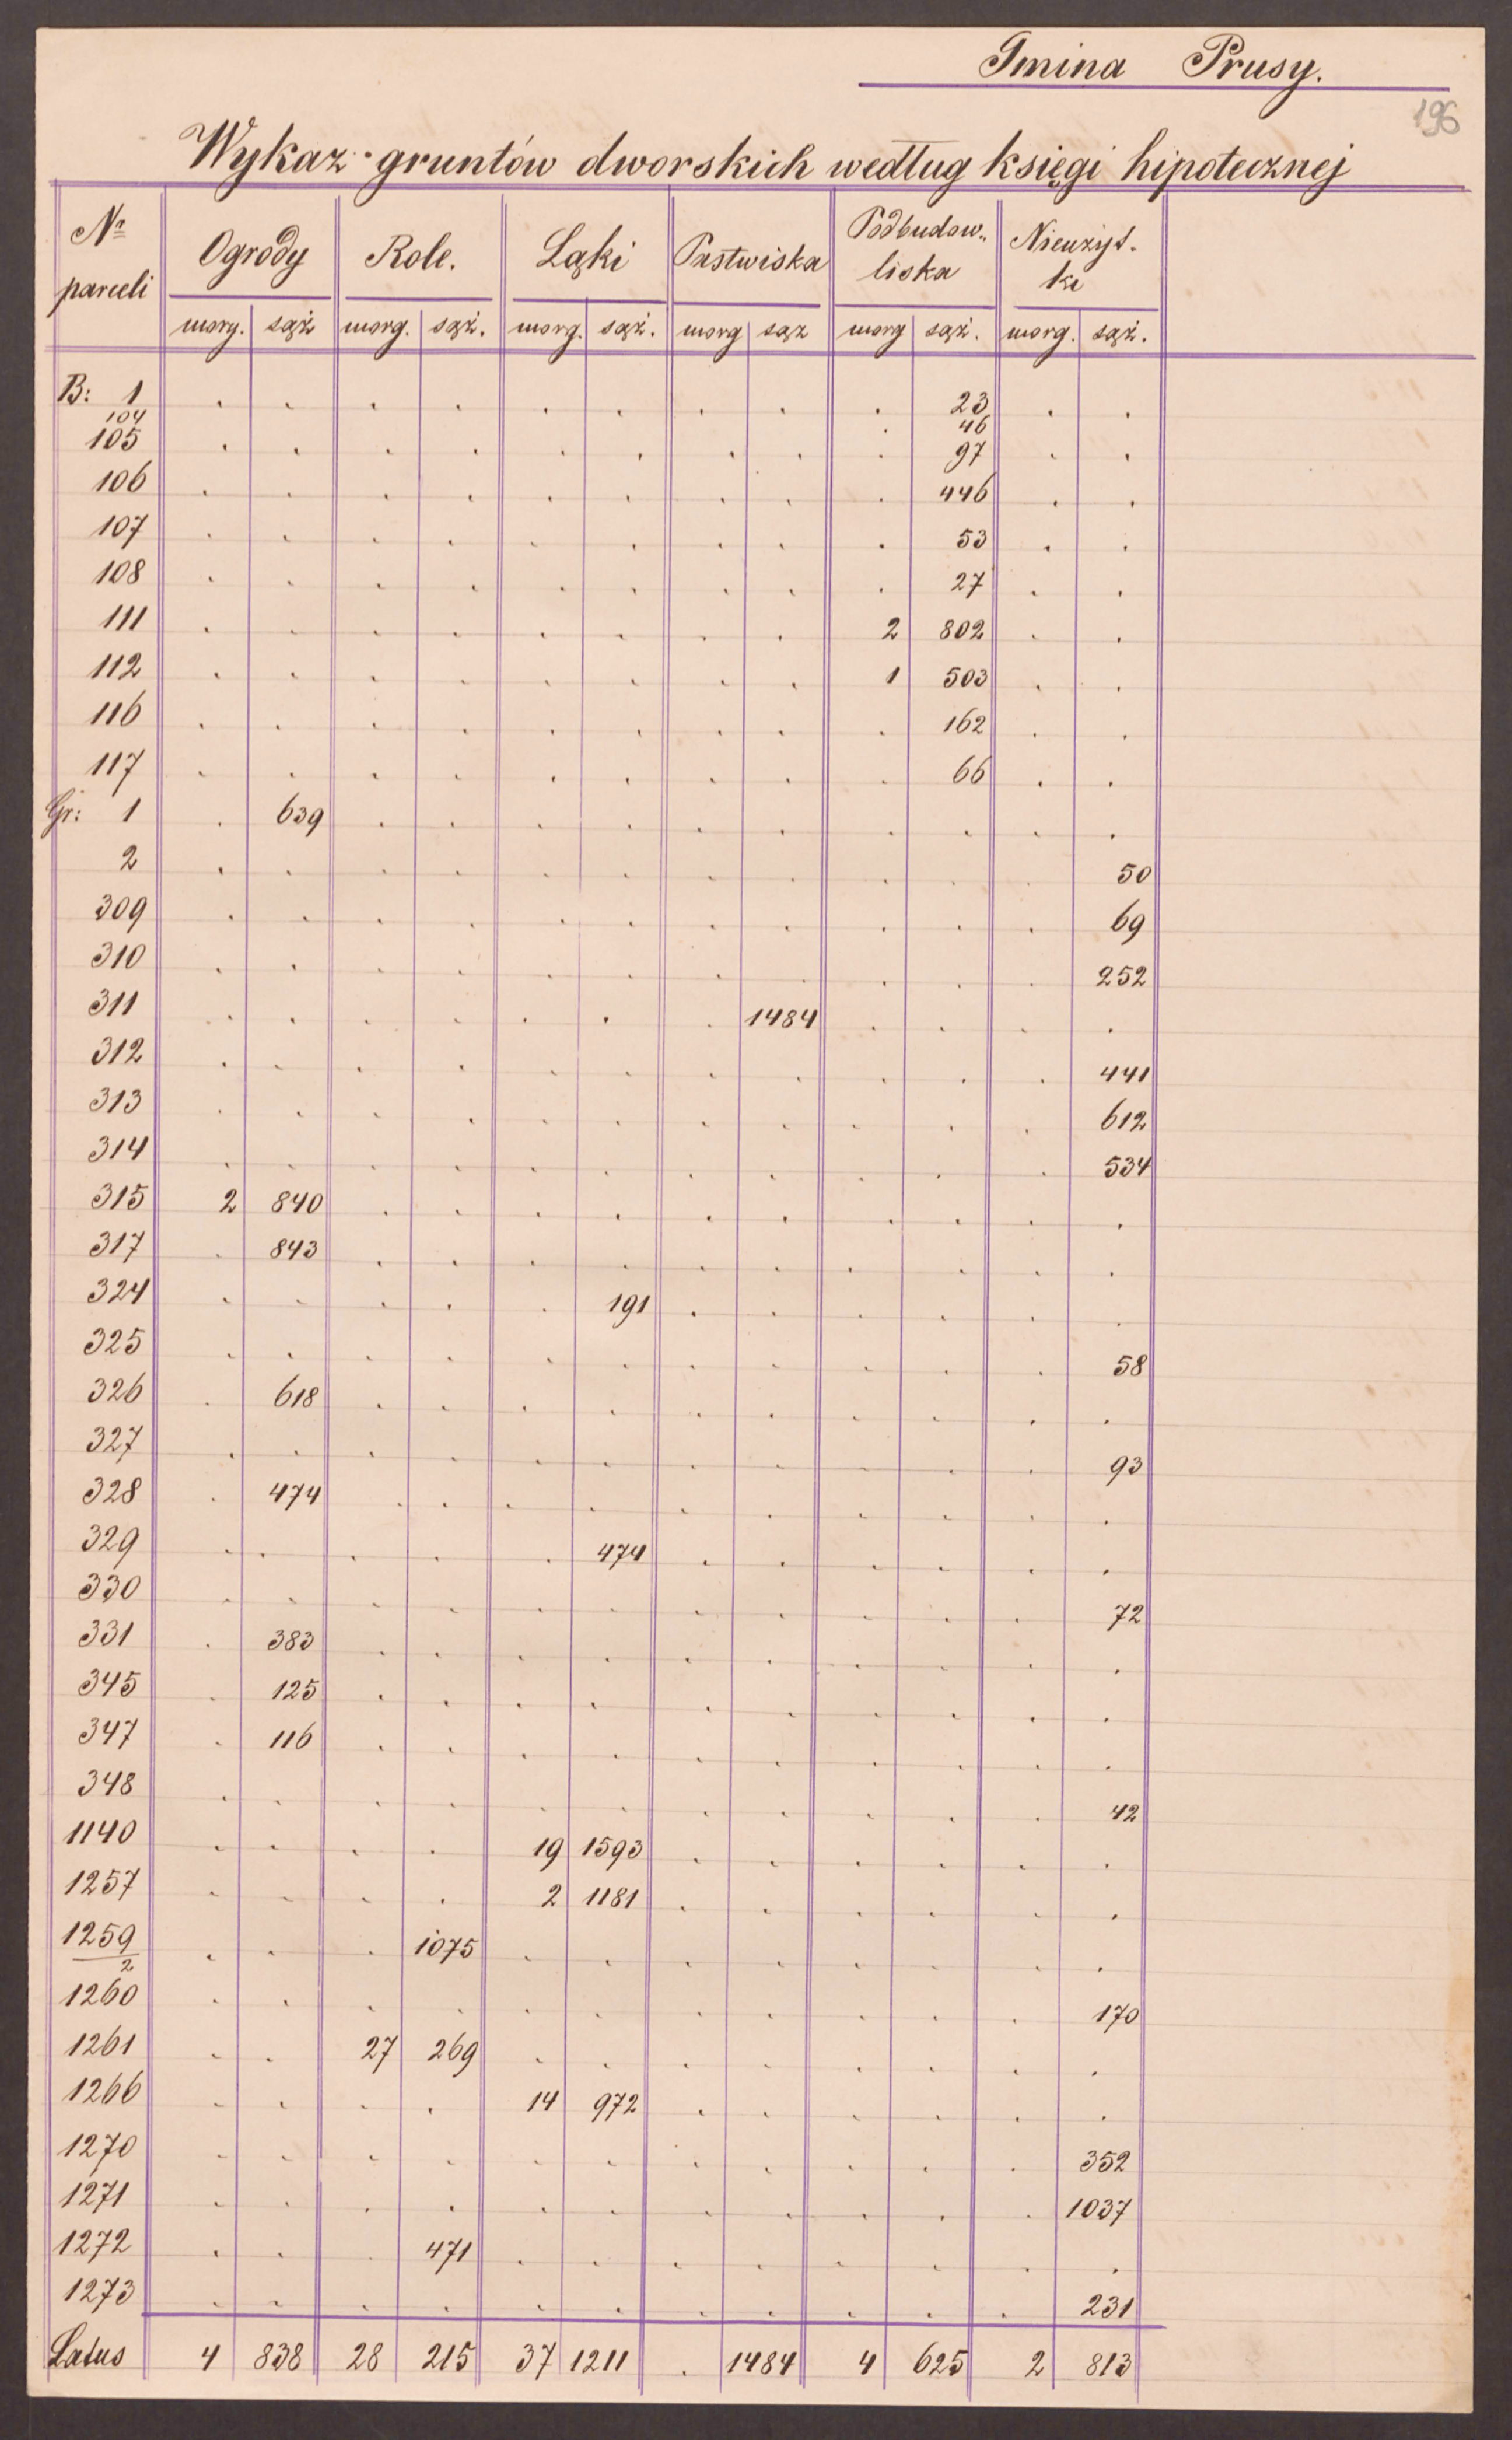 Gmina Prusy.
196
Wykaz gruntów dworskich według księgi hipotecznej
Nr parceli Ogrody Role. Łąki Pastwiska Podbudow„liska Nieużyt.ki
morg. sąż morg. sąż. morg. sąż. morg sąż morg sąż. morg. sąż.
B: 1 . . . . . . . . . 23 . .
104 . 46
105 . . . . . . . . . 97 . .
106 . . . . . . . . . 446 . .
107 . . . . . . . . . 53 . .
108 . . . . . . . . . 27 . .
111 . . . . . . . . 2 802 . .
112 . . . . . . . . 1 503 . .
116 . . . . . . . . . 162 . .
117 . . . . . . . . . 66 . .
Gr: 1 . 639 . . . . . . . . . .
2 . . . . . . . . . . . 50
309 . . . . . . . . . . . 69
310 . . . . . . . . . . . 252
311 . . . . . . . 1484 . . . .
312 . . . . . . . . . . . 441
313 . . . . . . . . . . . 612
314 . . . . . . . . . . . 534
315 2 840 . . . . . . . . . .
317 . 843 . . . . . . . . . .
324 . . . . . 191 . . . . . .
325 . . . . . . . . . . . 58
326 . 618 . . . . . . . . . .
327 . . . . . . . . . . . 93
328 . 474 . . . . . . . . . .
329 . . . . . 474 . . . . . .
330 . . . . . . . . . . . 72
331 . 383 . . . . . . . . . .
345 . 125 . . . . . . . . . .
347 . 116 . . . . . . . . . .
348 . . . . . . . . . . . 42
1140 . . . . 19 1593 . . . . . .
1257 . . . . 2 1181 . . . . . .
1259/2 . . . 1075 . . . . . . . .
1260 . . . . . . . . . . . 170
1261 . . 27 269 . . . . . . . .
1266 . . . . 14 972 . . . . . .
1270 . . . . . . . . . . . 352
1271 . . . . . . . . . . . 1037
1272 . . . 471 . . . . . . . .
1273 . . . . . . . . . . . 231
Latus 4 838 28 215 37 1211 . 1484 4 625 2 813